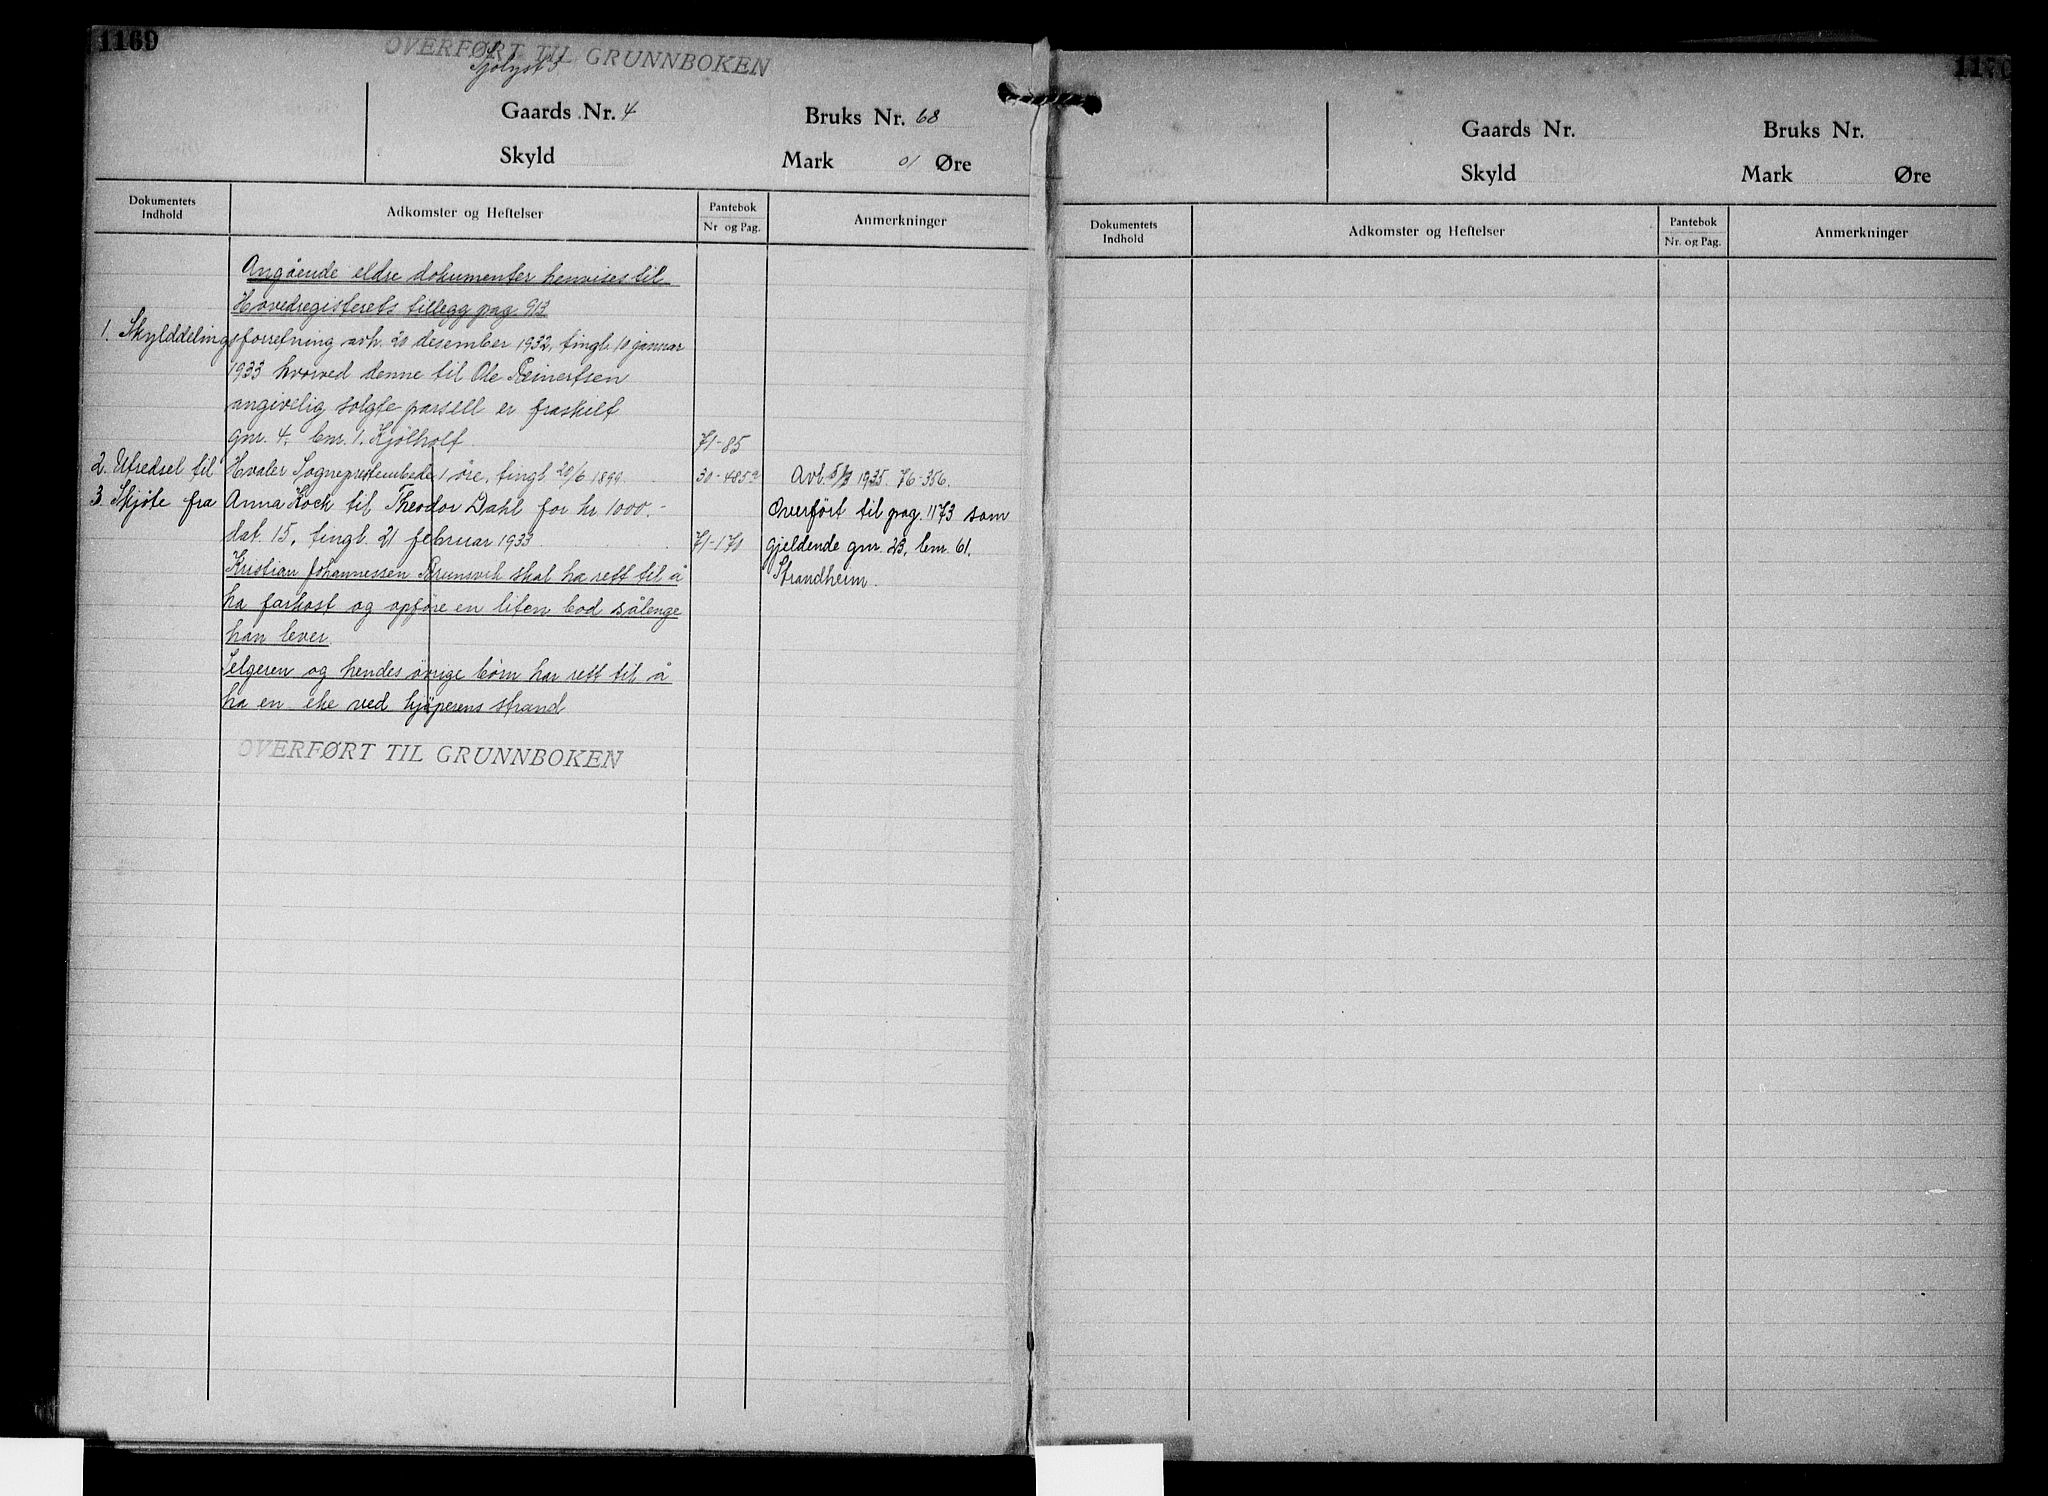 1169
OVERFØRT TIL GRUNNBOKEN
Sjølyst 3
Gaards Nr. 4 Bruks Nr. 68
Skyld Mark 01 Øre
Dokumentets Indhold
Adkomster og Heftelser
Pantebok
Nr og Pag.
Anmerkninger
Angående eldre dokumenter henvises til
Hovedregisterets tillegg pag. 913
1. Skylddelingsforretning avh. 20 desember 1932, tingl. 10 januar
1933 hvorved denne til Ole Reinertsen
angivelig solgte parsell er fraskilt
gnr. 4, bnr. 1. Kjølholt 71-85
2. Utredsel til Hvaler Sogneprestembede 1 øre, tingl. 20/6 1899. 30-485a Avl. 5/3 1935. 76-356.
3. Skjøte fra Anna Koch til Theodor Dahl for kr 1000.- Overført til pag. 1173 som
dat. 15, tingl. 21 februar 1933. 71-170 gjeldende gnr. 23, bnr. 61.
Kristian Johannessen Brunsvik skal ha rett til å Strandheim.
ha farkost og opføre en liten bod sålenge
han lever.
Selgeren og hendes øvrige børn har rett til å
ha en eke ved kjøperens strand
OVERFØRT TIL GRUNNBOKEN
1170
Gaards Nr. Bruks Nr.
Skyld Mark Øre
Dokumentets Indhold
Adkomster og Heftelser
Pantebok
Nr. og Pag.
Anmerkninger